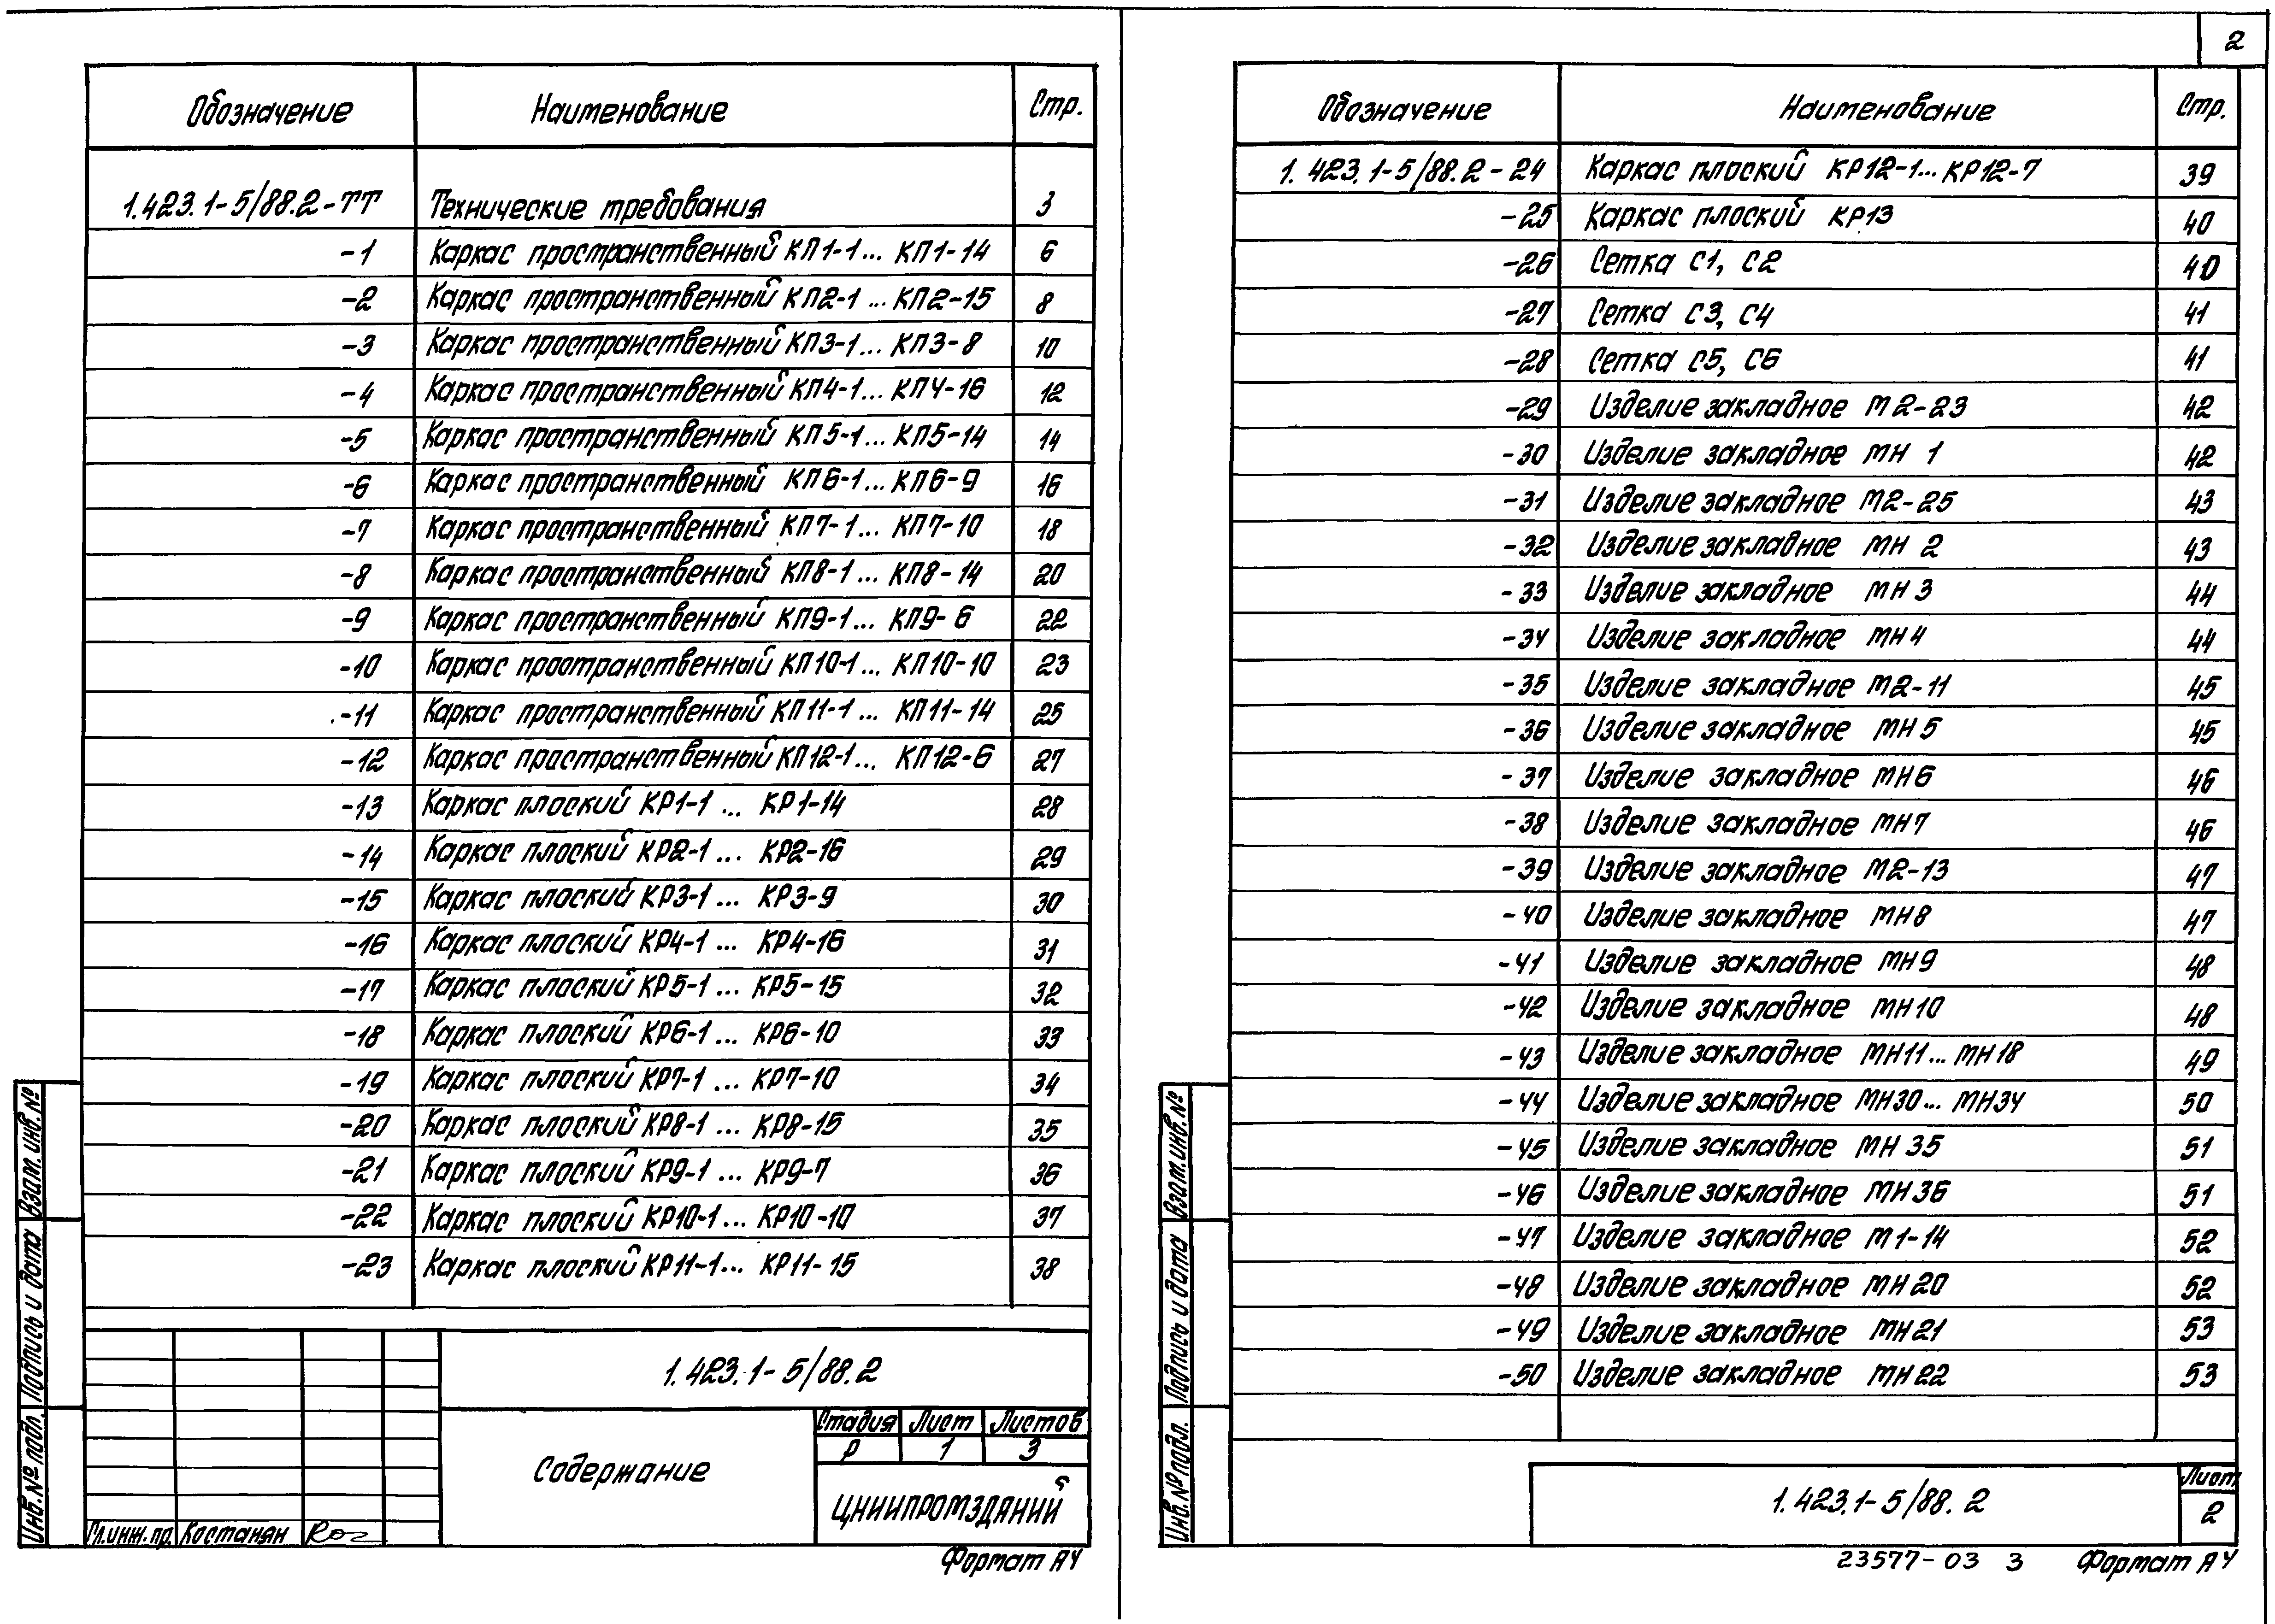 2
Обозначение Наименование Стр.
1.423.1-5/88.2-ТТ Технические требования 3
-1 Каркас пространственный КП1-1... КП1-14 6
-2 Каркас пространственный КП2-1 ... КП2-15 8
-3 Каркас пространственный КП3-1... КП3-8 10
-4 Каркас пространственный КП4-1... КП4-16 12
-5 Каркас пространственный КП5-1... КП5-14 14
-6 Каркас пространственный КП6-1... КП6-9 16
-7 Каркас пространственный КП7-1... КП7-10 18
-8 Каркас пространственный КП8-1... КП8-14 20
-9 Каркас пространственный КП9-1... КП9-6 22
-10 Каркас пространственный КП10-1... КП10-10 23
-11 Каркас пространственный КП11-1... КП11-14 25
-12 Каркас пространственный КП12-1... КП12-6 27
-13 Каркас плоский КР1-1 ... КР1-14 28
-14 Каркас плоский КР2-1 ... КР2-16 29
-15 Каркас плоский КР3-1 ... КР3-9 30
-16 Каркас плоский КР4-1 ... КР4-16 31
-17 Каркас плоский КР5-1 ... КР5-15 32
-18 Каркас плоский КР6-1 ... КР6-10 33
-19 Каркас плоский КР7-1 ... КР7-10 34
-20 Каркас плоский КР8-1 ... КР8-15 35
-21 Каркас плоский КР9-1 ... КР9-7 36
-22 Каркас плоский КР10-1... КР10-10 37
-23 Каркас плоский КР11-1... КР11-15 38
1.423.1-5/88.2
Содержание
Стадия Лист Листов
Р 1 3
ЦНИИПРОМЗДАНИЙ
Гл.инж.пр. Костанян
Инв.№ подл. Подпись и дата Взам.инв.№
Формат А4
Обозначение Наименование Стр.
1.423.1-5/88.2-24 Каркас плоский КР12-1... КР12-7 39
-25 Каркас плоский КР13 40
-26 Сетка С1, С2 40
-27 Сетка С3, С4 41
-28 Сетка С5, С6 41
-29 Изделие закладное М2-23 42
-30 Изделие закладное МН 1 42
-31 Изделие закладное М2-25 43
-32 Изделие закладное МН 2 43
-33 Изделие закладное МН 3 44
-34 Изделие закладное МН 4 44
-35 Изделие закладное М2-11 45
-36 Изделие закладное МН 5 45
-37 Изделие закладное МН6 46
-38 Изделие закладное МН7 46
-39 Изделие закладное М2-13 47
-40 Изделие закладное МН8 47
-41 Изделие закладное МН9 48
-42 Изделие закладное МН10 48
-43 Изделие закладное МН11... МН18 49
-44 Изделие закладное МН30... МН34 50
-45 Изделие закладное МН 35 51
-46 Изделие закладное МН36 51
-47 Изделие закладное М1-14 52
-48 Изделие закладное МН20 52
-49 Изделие закладное МН21 53
-50 Изделие закладное МН22 53
1.423.1-5/88.2
Лист
2
Инв.№ подл. Подпись и дата Взам.инв.№
23577-03 3 Формат А4